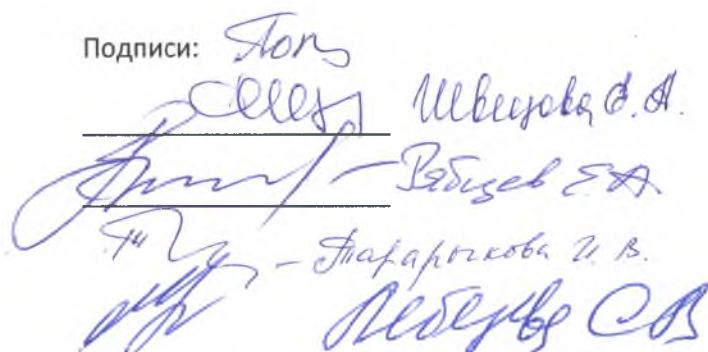 Подписи:
Швецова Е.А.
Рябцев Е А
Тарарыкова И. В.
Лебедева С В